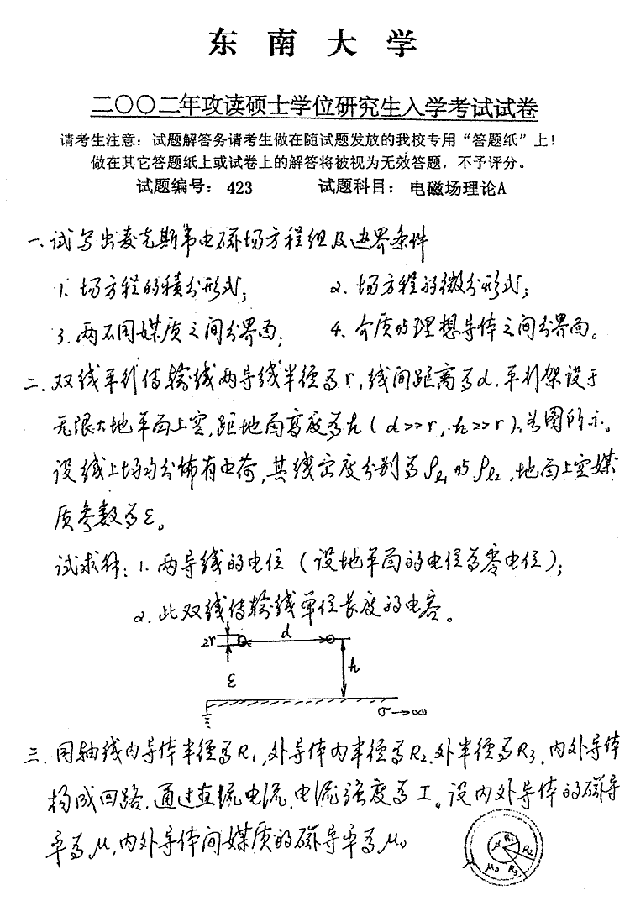 东南大学
二〇〇二年攻读硕士学位研究生入学考试试卷
请考生注意：试题解答务请考生做在随试题发放的我校专用“答题纸”上！
做在其它答题纸上或试卷上的解答将被视为无效答题，不予评分。
试题编号：423 试题科目：电磁场理论A
一.试写出麦克斯韦电磁场方程组及边界条件
1.场方程的积分形式； 2.场方程的微分形式；
3.两不同媒质之间分界面； 4.介质与理想导体之间分界面。
二.双线平行传输线两导线半径为r，线间距离为d.平行架设于
无限大地平面上空，距地面高度为h（d>>r，h>>r），如图所示。
设线上均匀分佈有电荷，其线密度分别为ρl1与ρl2，地面上空媒
质参数为ε。
试求解：1.两导线的电位（设地平面的电位为零电位）；
2.此双线传输线单位长度的电容。
2r d
h
ε
σ→∞
三.同轴线内导体半径为R1，外导体内半径为R2，外半径为R3，内外导体
构成回路.通过直流电流，电流强度为I。设内外导体的磁导
率为μ，内外导体间媒质的磁导率为μ0
μ R1 R2
μ0 R3